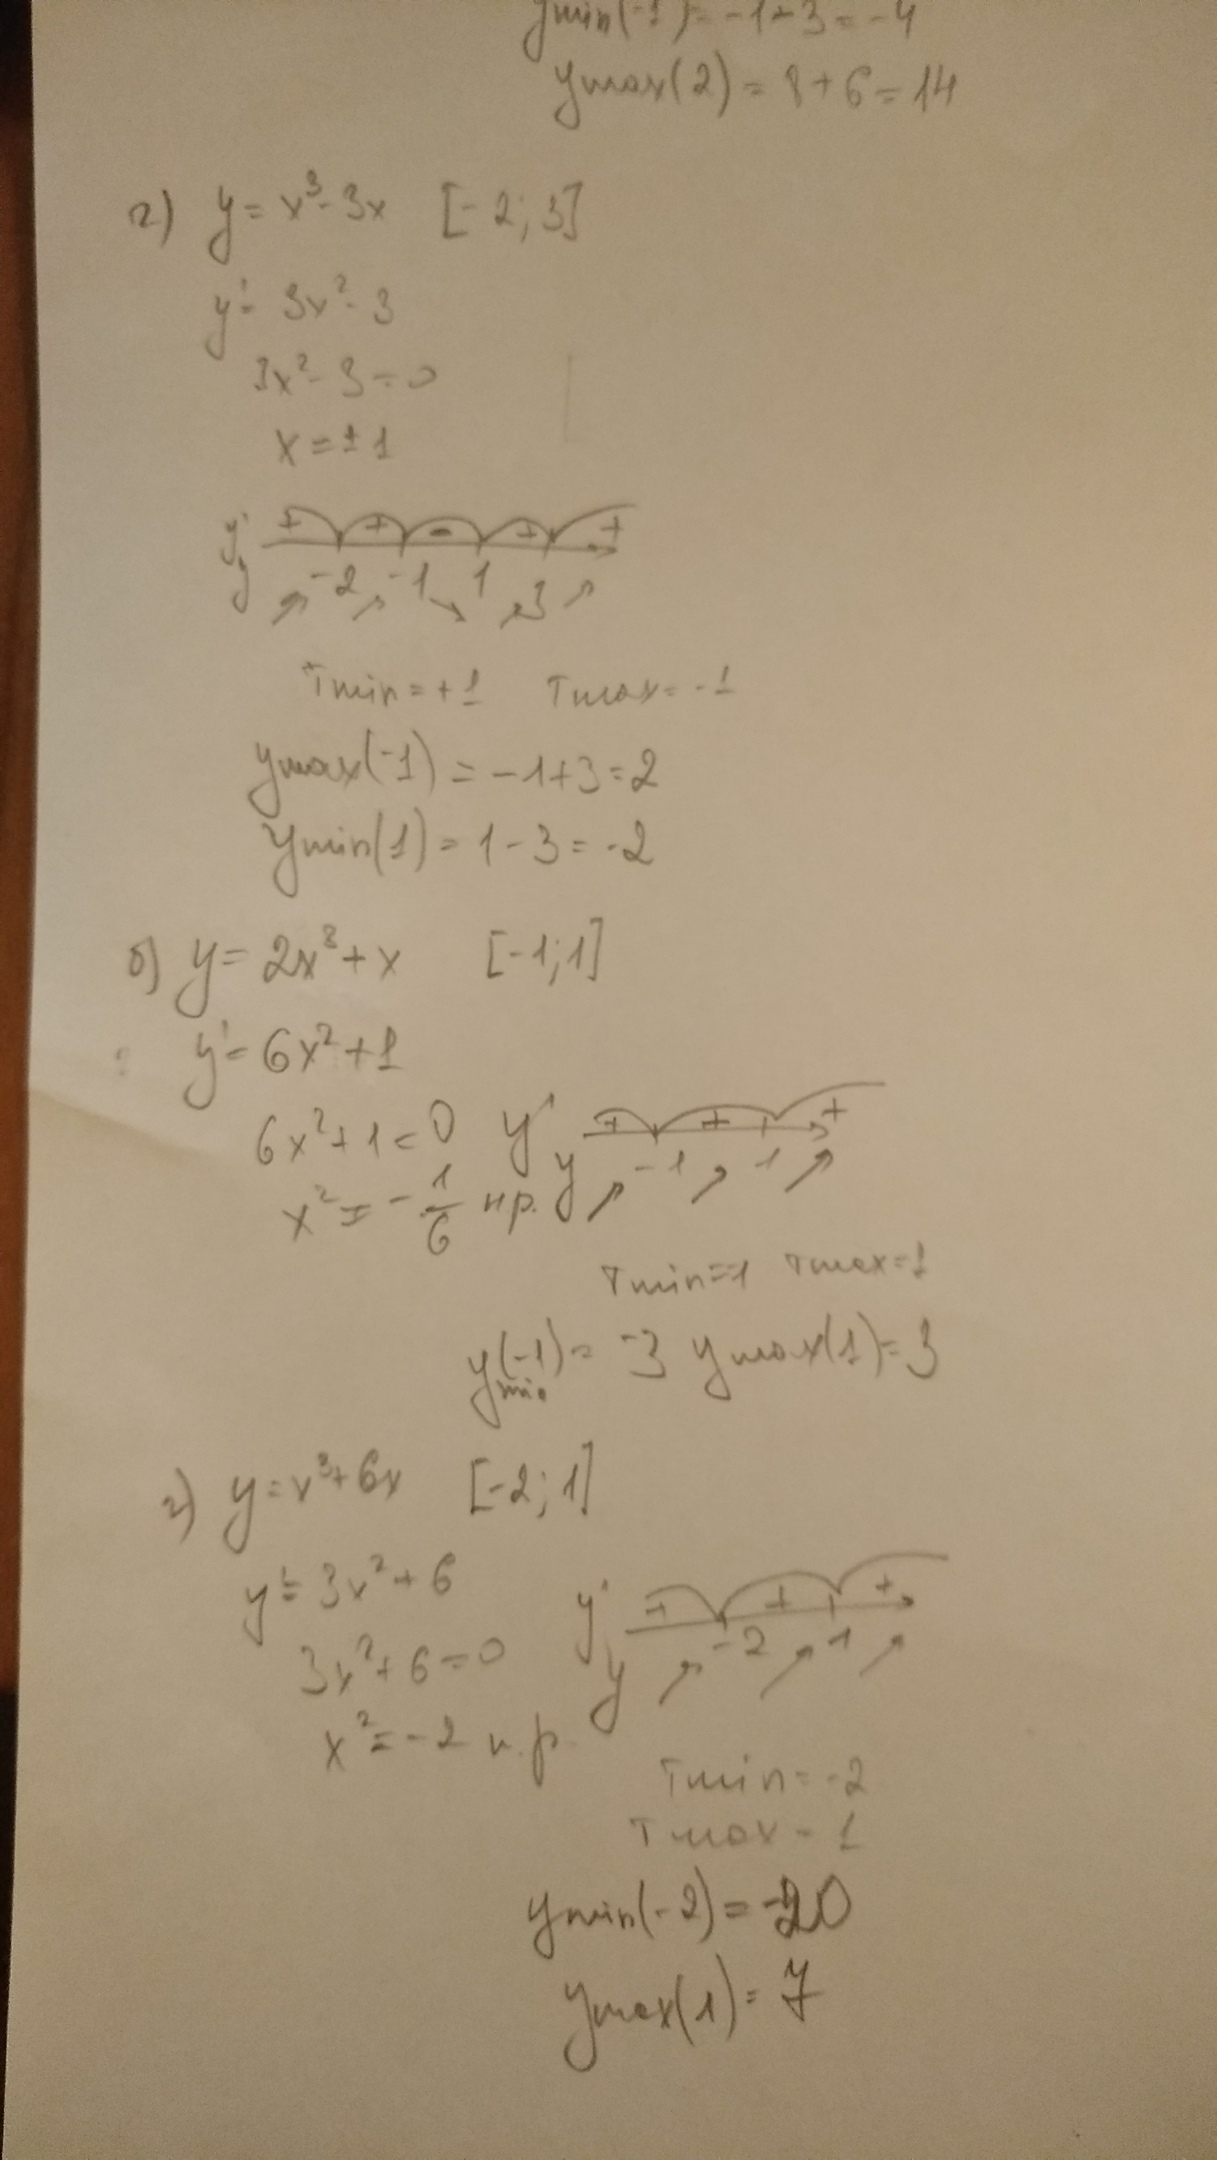 ymin(-1) = -1+3 = -4
ymax(2) = 8+6 = 14
г) y = x³-3x [-2; 3]
y' = 3x²-3
3x²-3=0
x=±1
y' + + - + +
y -2 -1 1 3
Tmin=+1 Tmax=-1
ymax(-1) = -1+3=2
ymin(1) = 1-3=-2
б) y = 2x³+x [-1;1]
y' = 6x²+1
6x²+1=0 y' + + +
x² = -1/6 н.р. y -1 1
Tmin=-1 Tmax=1
ymin(-1) = -3 ymax(1)=3
г) y=x³+6x [-2;1]
y' = 3x²+6 y' + + +
3x²+6=0 y -2 1
x²=-2 н.р.
Tmin=-2
Tmax=1
ymin(-2) = -20
ymax(1)=7